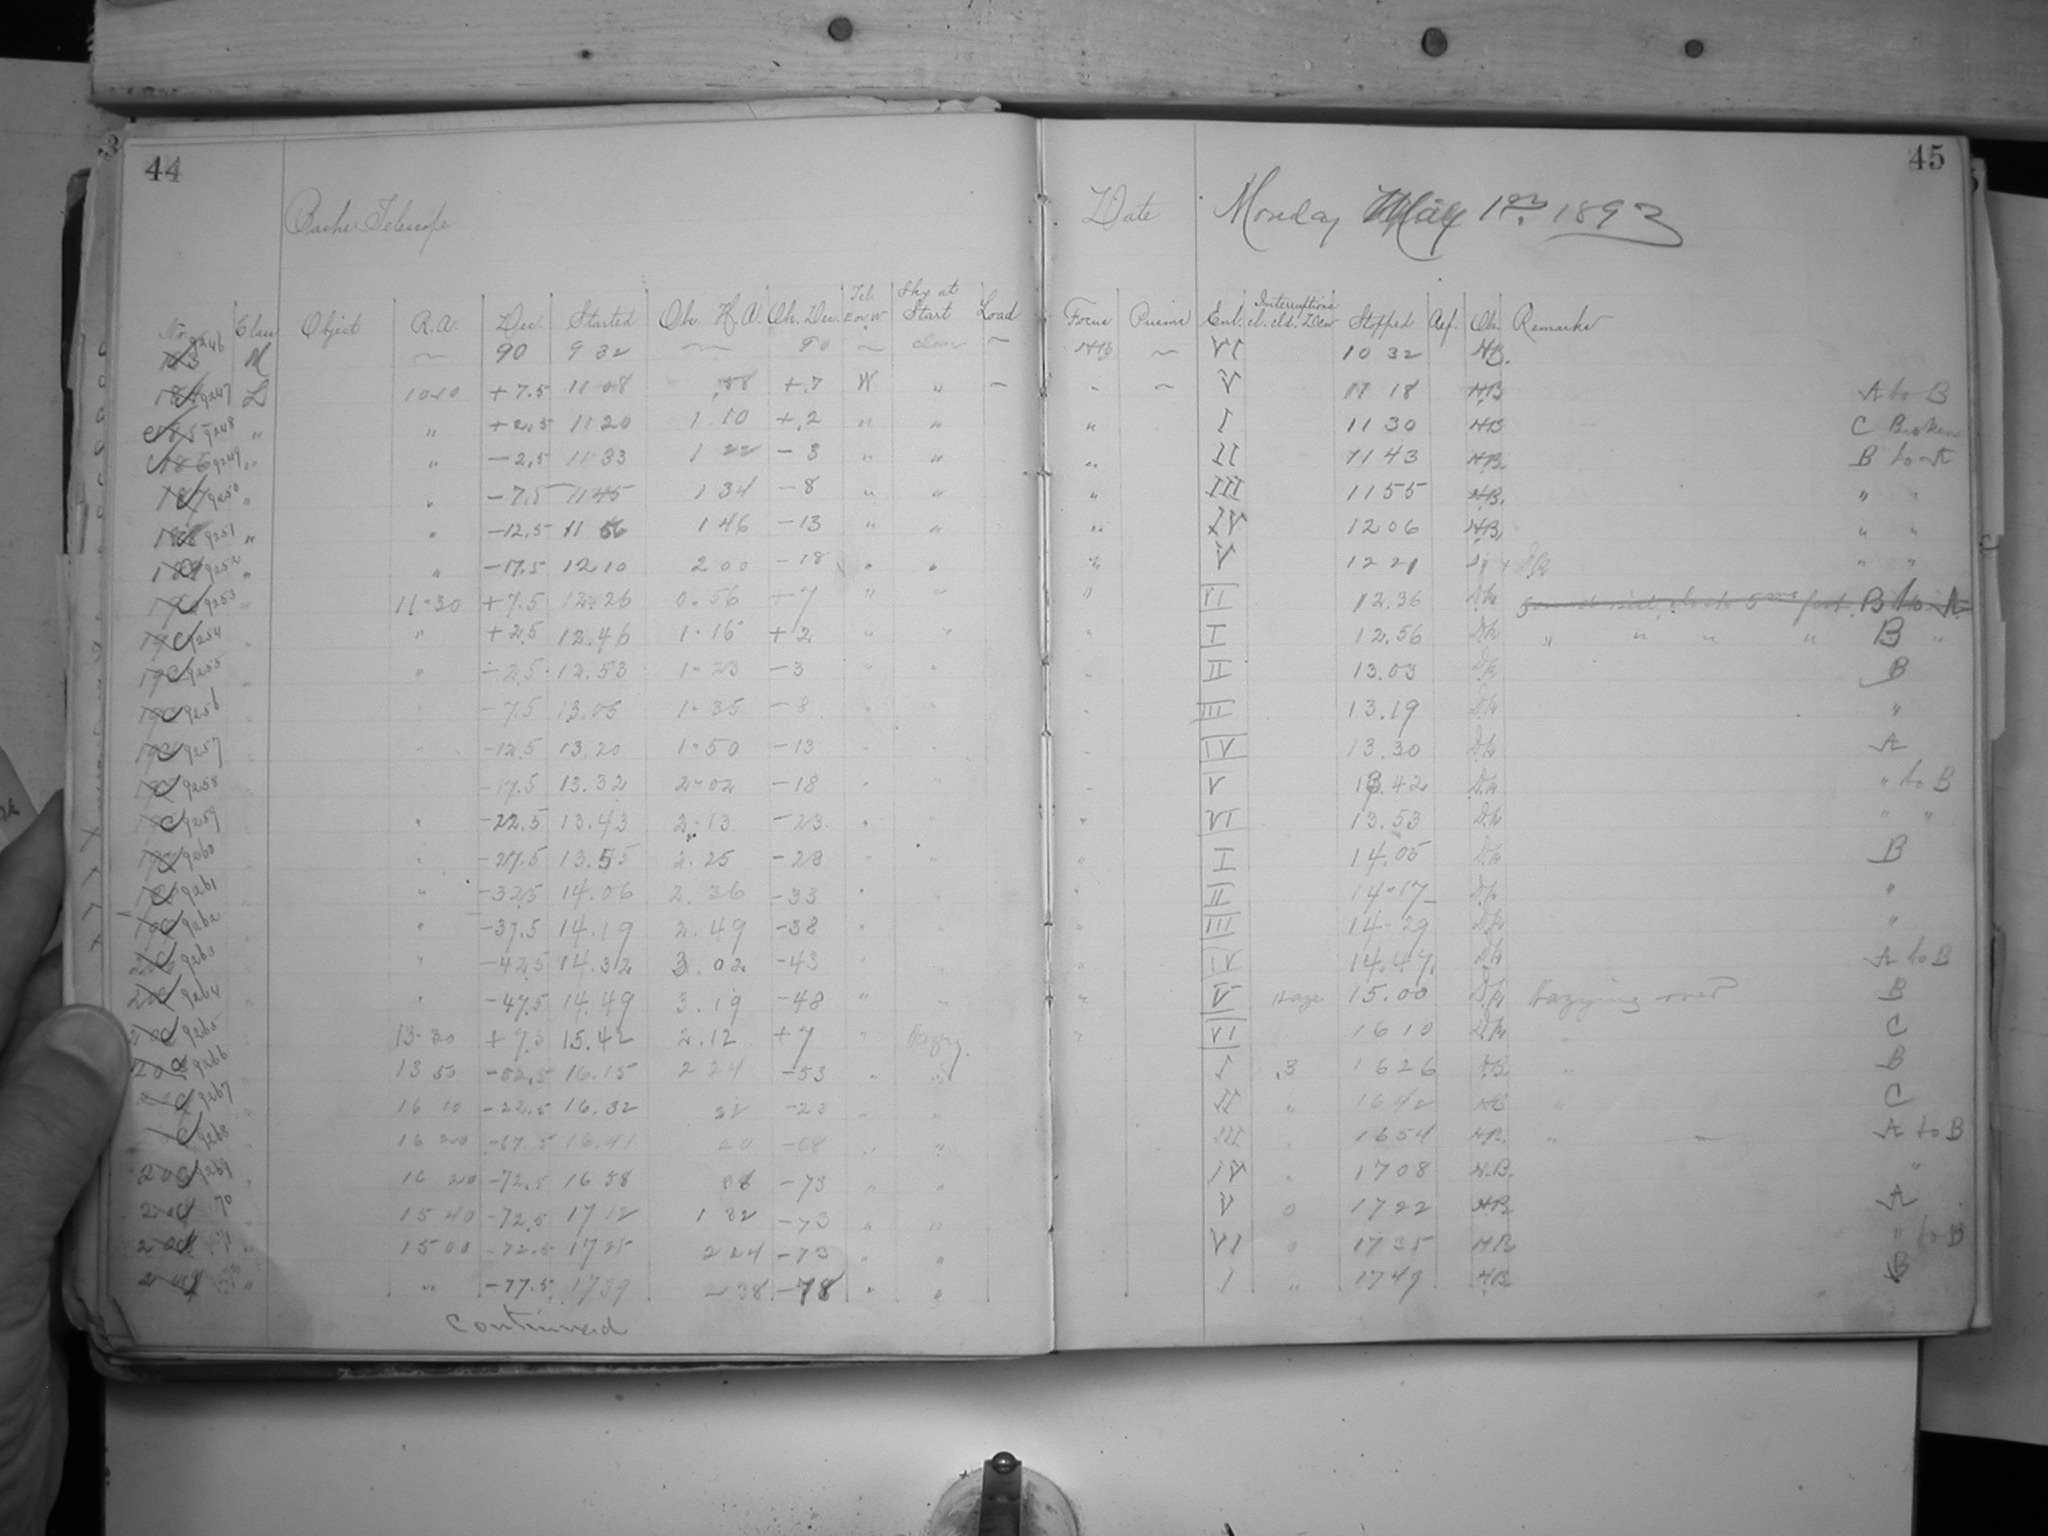 44
45
Bache Telescope Date Monday May 1st 1893
No. Class Object R.A. Dec. Started Ob. H.A. Ob. Dec. Tel. E or W Sky at Start Load Focus Prisms Enl. Interruptions cl. cld. Dew Stopped Aef. Ob. Remarks
9246 M ~ 90 9 32 ~ 90 ~ clear ~ HB ~ VI 10 32 HB.
9247 L 10 10 +7.5 11 08 58 +7 W " ~ - ~ V 11 18 HB A to B
9248 " " +2.5 11 20 1 10 +2 " " " I 11 30 HB C Broken
9249 " " -2.5 11 33 1 22 -3 " " " II 11 43 HB. B to A
9250 " " -7.5 11 45 1 34 -8 " " " III 11 55 HB. " "
9251 " " -12.5 11 56 1 46 -13 " " " IV 12 06 HB. " "
9252 " " -17.5 12.10 2 00 -18 " " " V 12 21 " "
9253 " 11-30 +7.5 12.26 0.56 +7 " " " VI 12.36 D.h. B to A
9254 " " +2.5 12.46 1.16 +2 " " " I 12.56 D.h. " " " " B "
9255 " " -2.5 12.53 1.23 -3 " " " II 13.03 D.h. B
9256 " " -7.5 13.05 1.35 -8 " " " III 13.19 D.h. "
9257 " " -12.5 13.20 1.50 -13 " " " IV 13.30 D.h. A
9258 " " -17.5 13.32 2.02 -18 " " " V 13.42 D.h. " to B
9259 " " -22.5 13.43 2.13 -23 " " " VI 13.53 D.h. " "
9260 " " -27.5 13.55 2.25 -28 " " " I 14.05 D.h. B
9261 " " -32.5 14.06 2.36 -33 " " " II 14-17 D.h. "
9262 " " -37.5 14.19 2.49 -38 " " " III 14-29 D.h. "
9263 " " -42.5 14.32 3.02 -43 " " " IV 14.47 D.h. A to B
9264 " " -47.5 14.49 3.19 -48 " " " V Haze 15.00 D.h. Hazying over B
9265 " 13-30 +7.5 15.42 2.12 +7 " Hazy " VI 16 10 D.h. " C
9266 " 13 50 -52.5 16.15 2 24 -53 " " I .3 16 26 HB. " B
9267 " 16 10 -22.5 16.32 22 -23 " " II " 16 42 HB " C
9268 " 16 20 -67.5 16.41 20 -68 " " III " 16 54 HB. " A to B
9269 " 16 20 -72.5 16 58 38 -73 " " IV " 17 08 H.B. "
70 " 15 40 -72.5 17 12 1 32 -73 " " V 0 17 22 HB A
71 " 15 00 -72.5 17 25 2 24 -73 " " VI 0 17 35 HB " to B
" " -77.5 17 39 2 38 -78 " " I " 17 49 HB. B
Continued